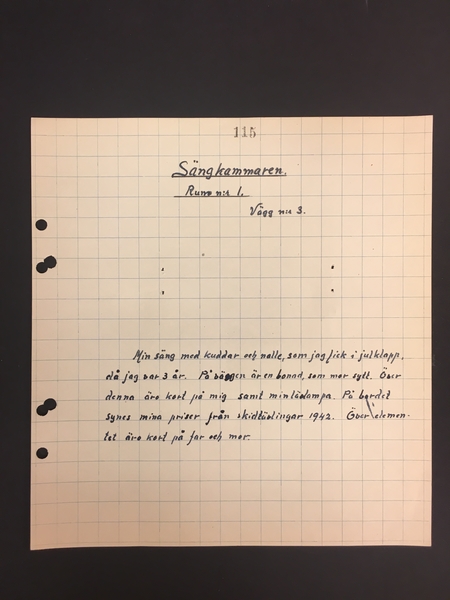 115
Sängkammaren.
Rum n:r 1.
Vägg n:r 3.
Min säng med kuddar och nalle, som jag fick i julklapp,
då jag var 3 år. På väggen är en bonad, som mor sytt. Över
denna äro kort på mig samt min läslampa. På bordet
synes mina priser från skidtävlingar 1942. Över elemen-
tet äro kort på far och mor.